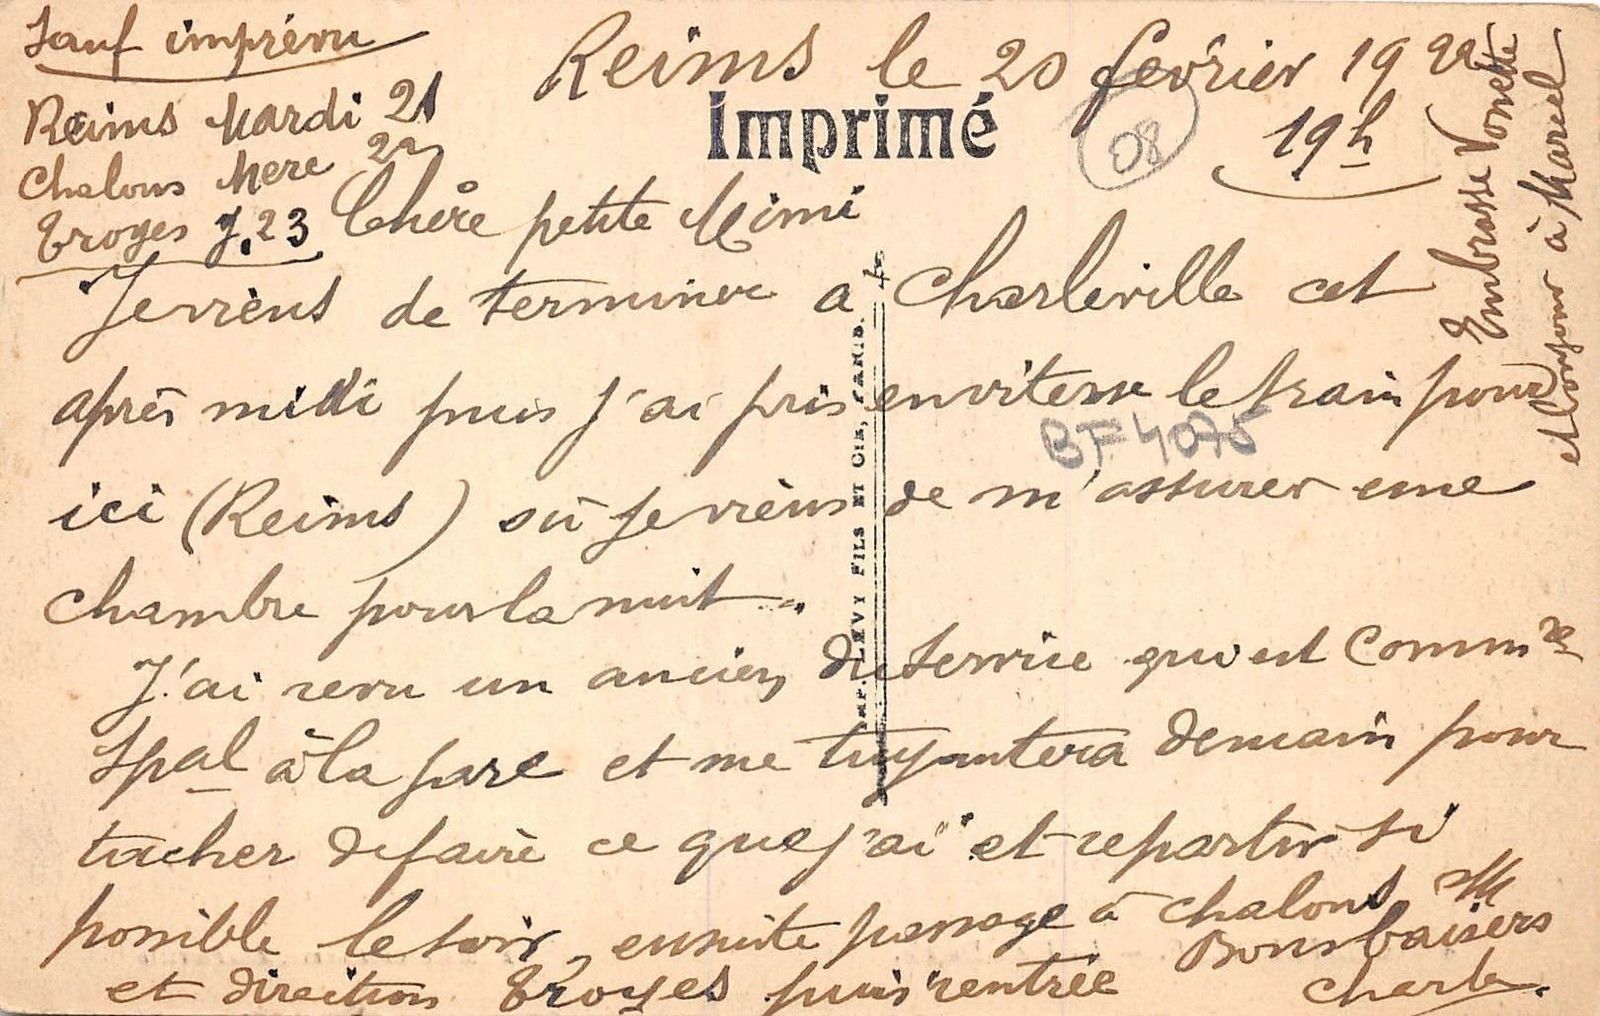 Sauf imprévu
Reims Mardi 21
Chalons Merc 22
Troyes J. 23
Reims le 20 fevrier 1922
19h
Imprimé
08
Chère petite Mimi
Je viens de terminer a Charleville cet
après midi puis j'ai pris en vitesse le train pour
ici (Reims) où je viens de m'assurer une
chambre pour la nuit.
J'ai revu un ancien du service qui est Commre
Spal à la gare et me tuyautera demain pour
tacher de faire ce que j'ai et repartir si
possible le soir, ensuite passage à Chalons
et direction Troyes puis rentrée
Bons baisers
Charles
Embrasse Vonette
et bonjour à Marcel
BF 4075
Imp. LEVY FILS ET CIE, PARIS.